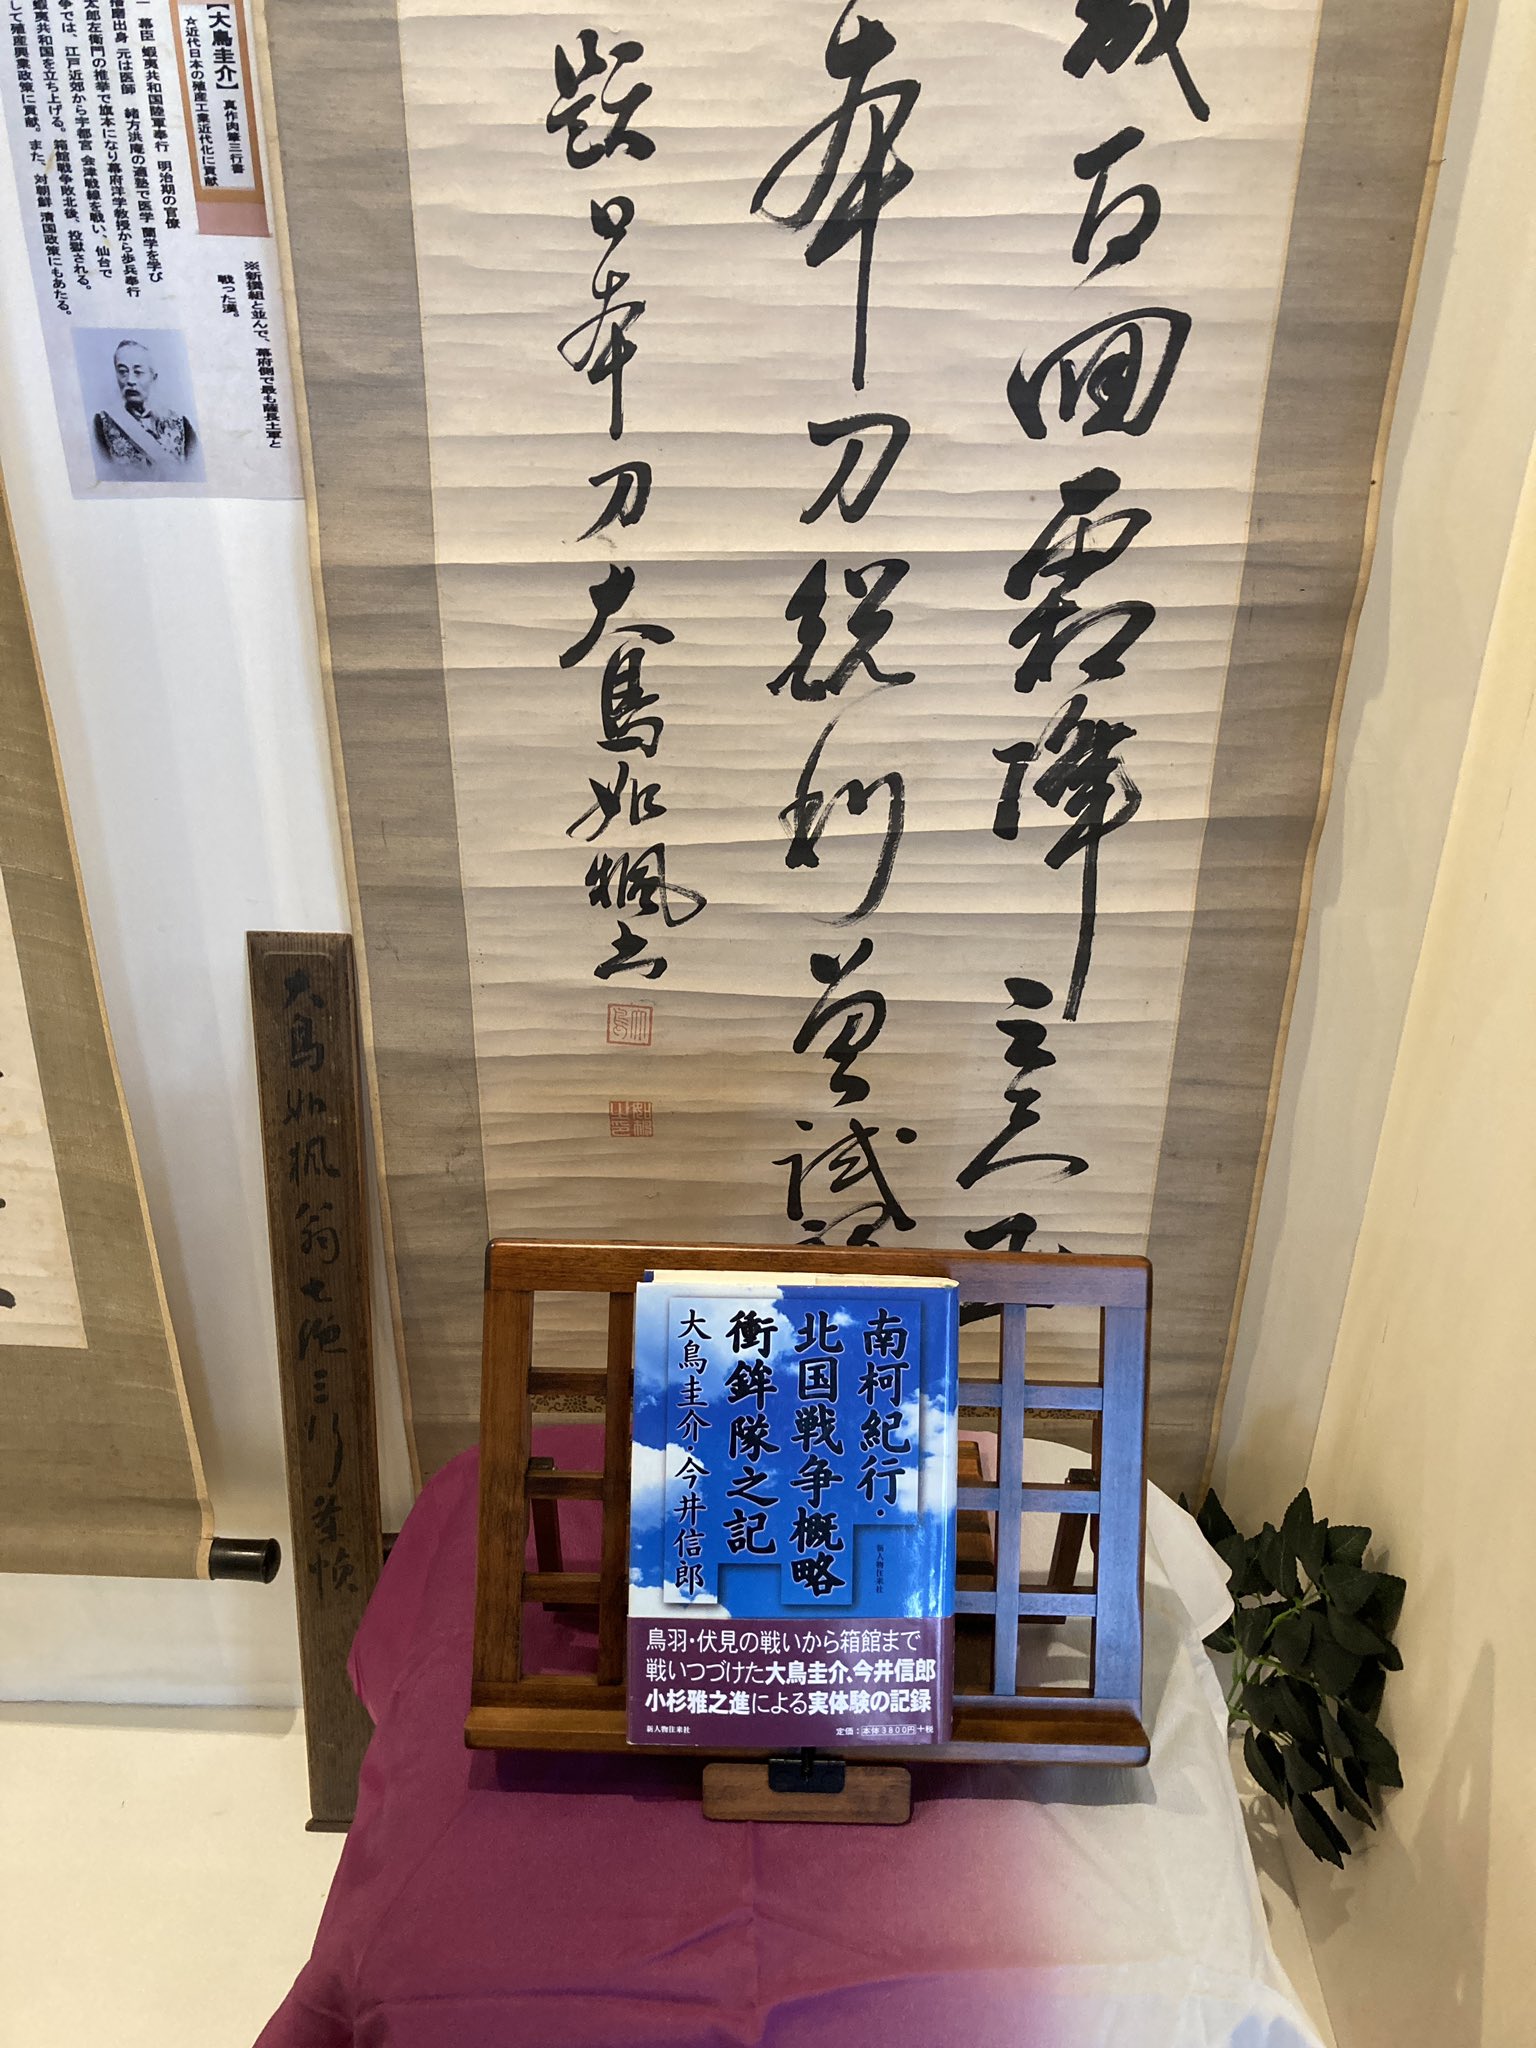 百回霜降三尺玉
本刀鋭利曽試
題日本刀 大鳥如楓書
【大鳥圭介】 真作肉筆三行書
☆近代日本の殖産工業近代化に貢献
幕臣 蝦夷共和国陸軍奉行 明治期の官僚
播磨出身 元は医師 緒方洪庵の適塾で医学 蘭学を学び
太郎左衛門の推挙で旗本になり幕府洋学教授から歩兵奉行
争では、江戸近郊から宇都宮 会津戦線を戦い、仙台で
蝦夷共和国を立ち上げる。箱館戦争敗北後、投獄される。
して殖産興業政策に貢献。また、対朝鮮 清国政策にもあたる。
※新撰組と並んで、幕府側で最も薩長土軍と
戦った漢。
大鳥如楓翁七絶三行
南柯紀行・
北国戦争概略
衝鉾隊之記
大鳥圭介・今井信郎
新人物往来社
鳥羽・伏見の戦いから箱館まで
戦いつづけた大鳥圭介、今井信郎
小杉雅之進による実体験の記録
新人物往来社
定価:本体3800円+税